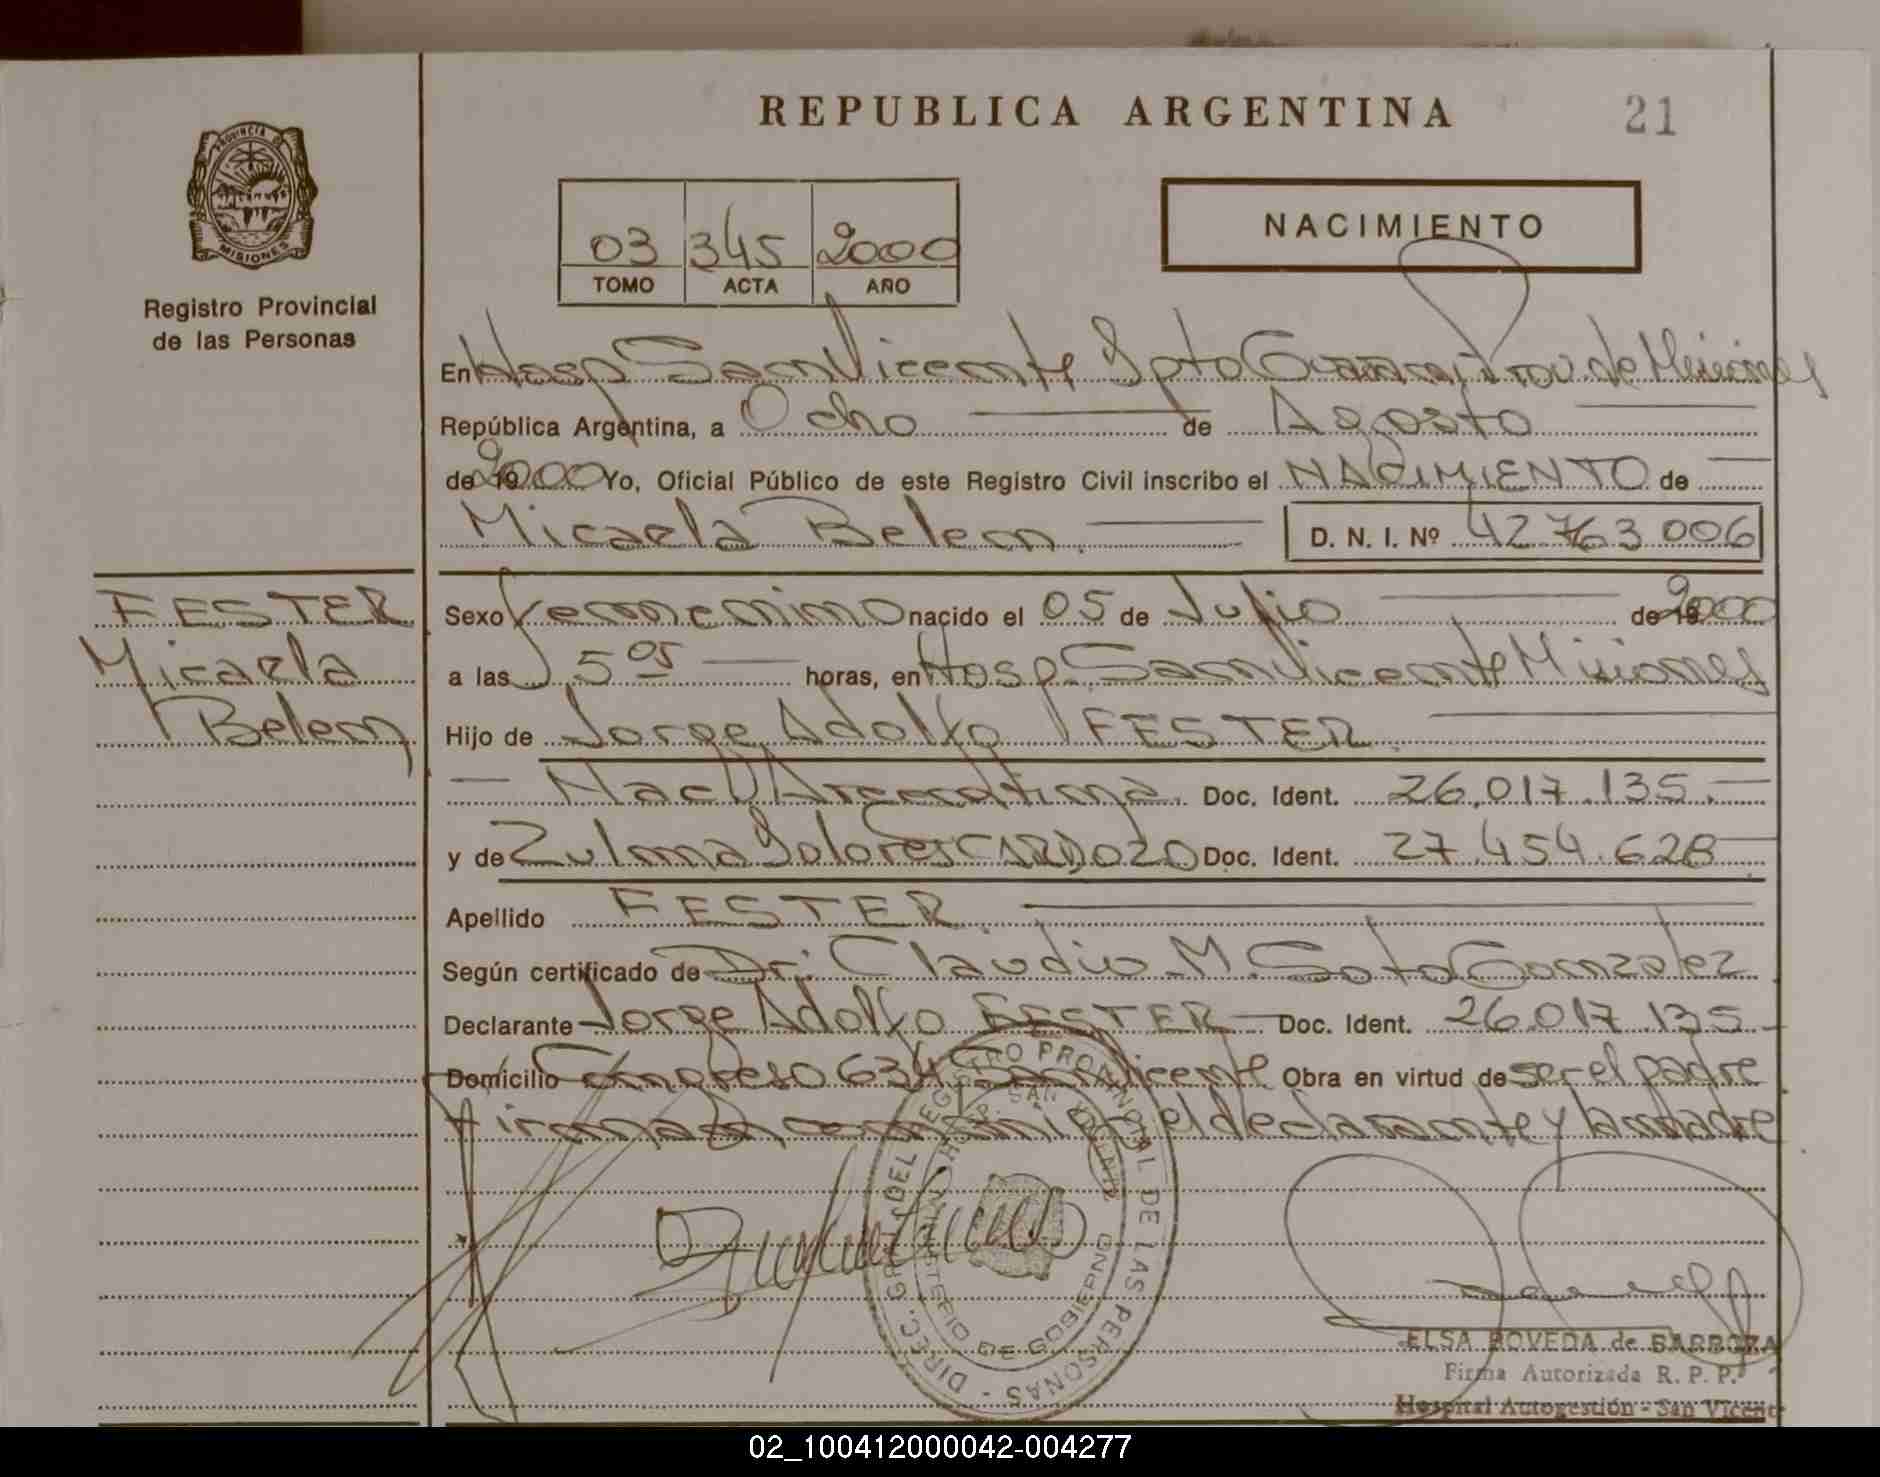 REPUBLICA ARGENTINA
21
PROVINCIA DE
MISIONES
Registro Provincial
de las Personas
03 345 2000
TOMO ACTA AÑO
NACIMIENTO
En Hosp San Vicente Dpto Guarani, Prov. de Misiones
República Argentina, a Ocho de Agosto
de 2000 Yo, Oficial Público de este Registro Civil inscribo el NACIMIENTO de
Micaela Belem D. N. I. Nº 42763006
FESTER
Micaela
Belem
Sexo femenino nacido el 05 de Julio de 2000
a las 5 05 horas, en Hosp. San Vicente Misiones
Hijo de Jorge Adolfo FESTER
Nac. Argentina. Doc. Ident. 26.017.135.
y de Zulma Dolores CARDOZO Doc. Ident. 27.454.628
Apellido FESTER
Según certificado de Dr. Claudio M. Soto Gonzalez
Declarante Jorge Adolfo FESTER Doc. Ident. 26.017.135
Domicilio Congreso 634 San Vicente Obra en virtud de ser el padre
firman conmigo el declarante y la madre
DIREC. GRAL. DEL REGISTRO PROVINCIAL DE LAS PERSONAS
HOSP. SAN VICENTE
MINISTERIO DE GOBIERNO
ELSA BOVEDA de BARBOZA
Firma Autorizada R. P. P.
Hospital Autogestión - San Vicente
02_100412000042-004277